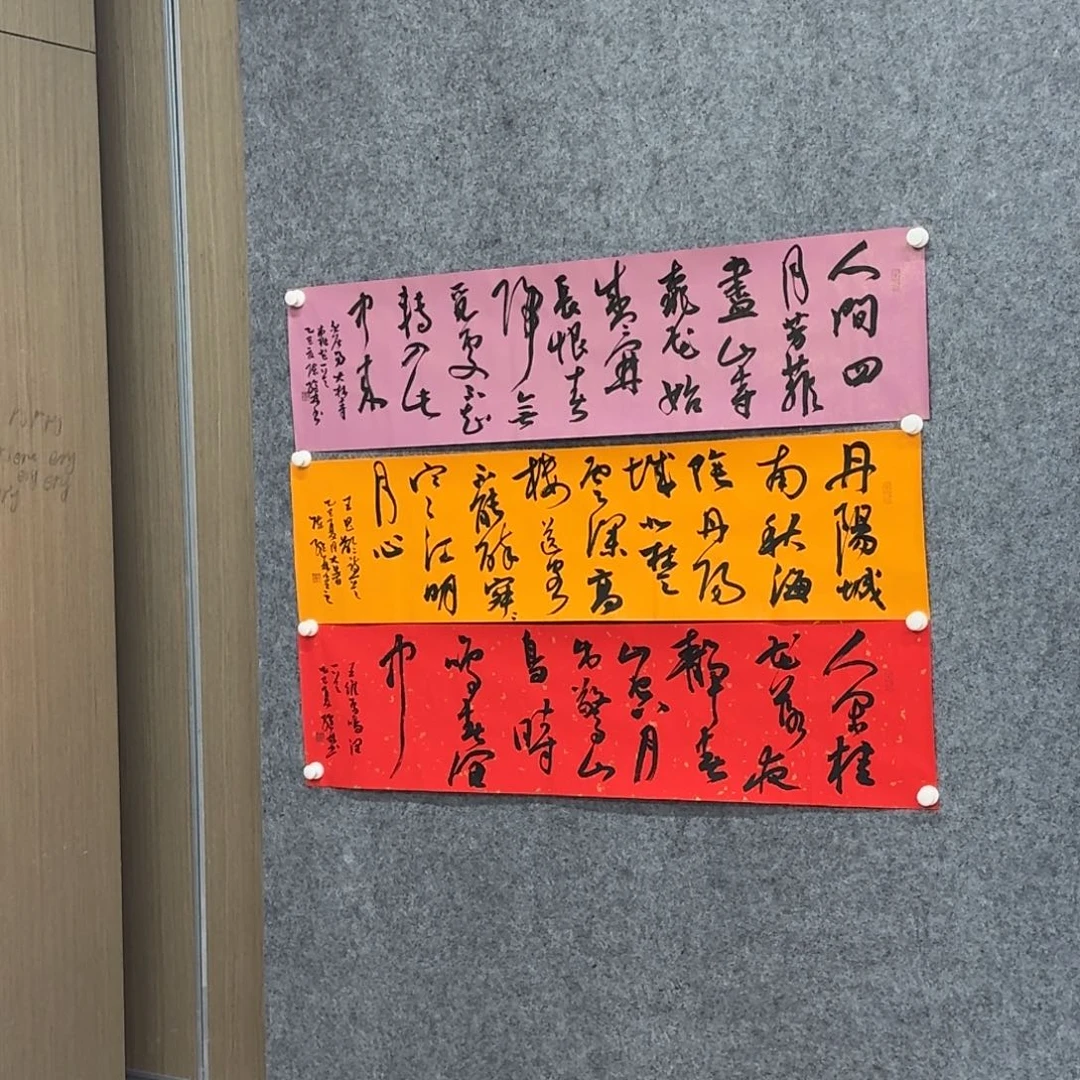 人間四
月芳菲
盡山寺
桃花始
盛開
長恨春
歸無
覓處不知
轉入此
中來
白居易大林寺
桃花一首
丹陽城
南秋海
陰丹陽
城北楚
雲深高
樓送客
不能醉寂
寂寒江明
月心
王昌齡詩一首
乙巳夏月大暑
人閑桂
花落夜
靜春
山空月
出驚山
鳥時
鳴春澗
中
王維鳥鳴澗
一首
乙巳夏